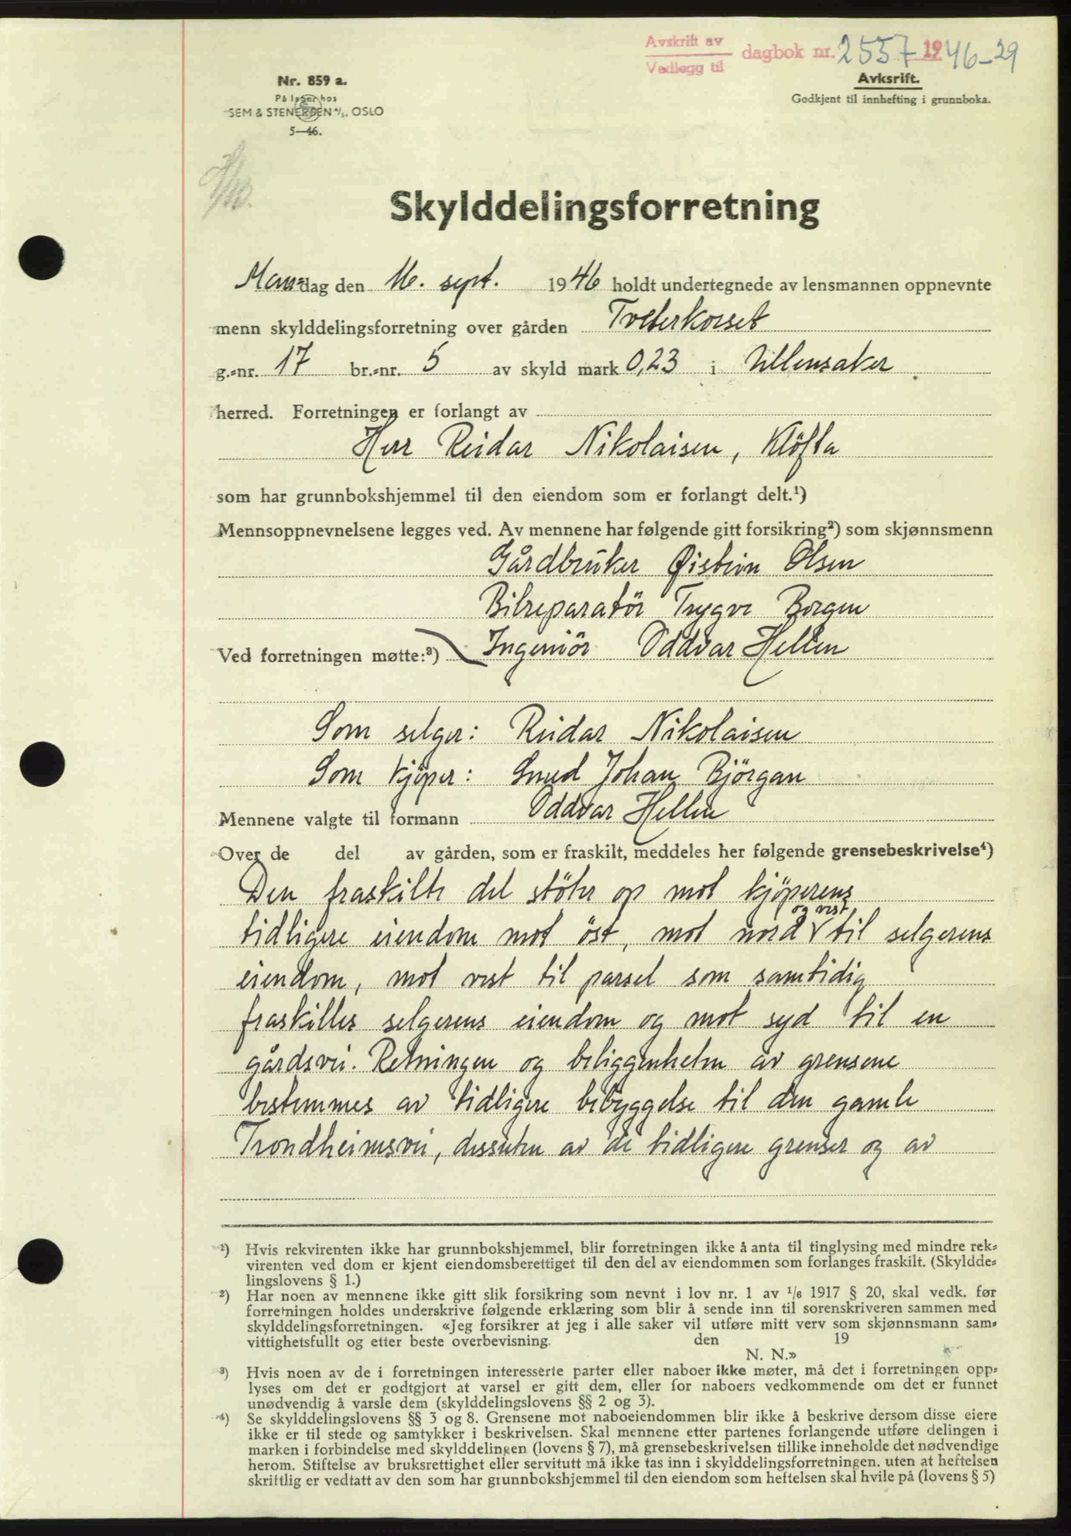 Avskrift av
Vedlegg til dagbok nr. 2557 1946-29
Avksrift.
Godkjent til innhefting i grunnboka.
Nr. 859 a.
På lager hos
SEM & STENERSEN A/S, OSLO
5—46.
Skylddelingsforretning
Mandag den 16. sept. 1946 holdt undertegnede av lensmannen oppnevnte
menn skylddelingsforretning over gården Tveterkorset
g.-nr. 17 br.-nr. 5 av skyld mark 0,23 i Ullensaker
herred. Forretningen er forlangt av
Herr Reidar Nikolaisen, Klöfta
som har grunnbokshjemmel til den eiendom som er forlangt delt.¹)
Mennsoppnevnelsene legges ved. Av mennene har følgende gitt forsikring²) som skjønnsmenn
Gårdbruker Øistein Olsen
Bilreparatör Trygve Borgen
Ved forretningen møtte:³) Ingeniör Oddvar Hellen
Som selger: Reidar Nikolaisen
Som kjöper: Johan Björgan
Mennene valgte til formann Oddvar Hellen
Over de del av gården, som er fraskilt, meddeles her følgende grensebeskrivelse⁴)
Den fraskilte del stöter op mot kjöperens
tidligere eiendom mot öst, mot nord og vest til selgerens
eiendom, mot vest til parsel som samtidig
fraskilles selgerens eiendom og mot syd til en
gårdsvei. Retningen og beliggenheten av grensene
bestemmes av tidligere bebyggelse til den gamle
Trondheimsvei, dessuten av de tidligere grenser og av
¹) Hvis rekvirenten ikke har grunnbokshjemmel, blir forretningen ikke å anta til tinglysing med mindre rek-
virenten ved dom er kjent eiendomsberettiget til den del av eiendommen som forlanges fraskilt. (Skyldde-
lingslovens § 1.)
²) Har noen av mennene ikke gitt slik forsikring som nevnt i lov nr. 1 av 1/6 1917 § 20, skal vedk. før
forretningen holdes underskrive følgende erklæring som blir å sende inn til sorenskriveren sammen med
skylddelingsforretningen. «Jeg forsikrer at jeg i alle saker vil utføre mitt verv som skjønnsmann sam-
vittighetsfullt og etter beste overbevisning. den 19
N. N.»
³) Hvis noen av de i forretningen interesserte parter eller naboer ikke møter, må det i forretningen opp-
lyses om det er godtgjort at varsel er gitt dem, eller for naboers vedkommende om det er funnet
unødvendig å varsle dem (skylddelingslovens §§ 2 og 3).
⁴) Se skylddelingslovens §§ 3 og 8. Grensene mot naboeiendommen blir ikke å beskrive dersom disse eiere
ikke er til stede og samtykker i beskrivelsen. Skal mennene etter partenes forlangende utføre delingen i
marken i forbindelse med skylddelingen (lovens § 7), må grensebeskrivelsen tillike inneholde det nødvendige
herom. Stiftelse av bruksrettighet eller servitutt må ikke tas inn i skylddelingsforretningen. uten at heftelsen
skriftlig er vedtatt av den som har grunnbokshjemmel til den eiendom som heftelsen skal hvile på (lovens § 5)